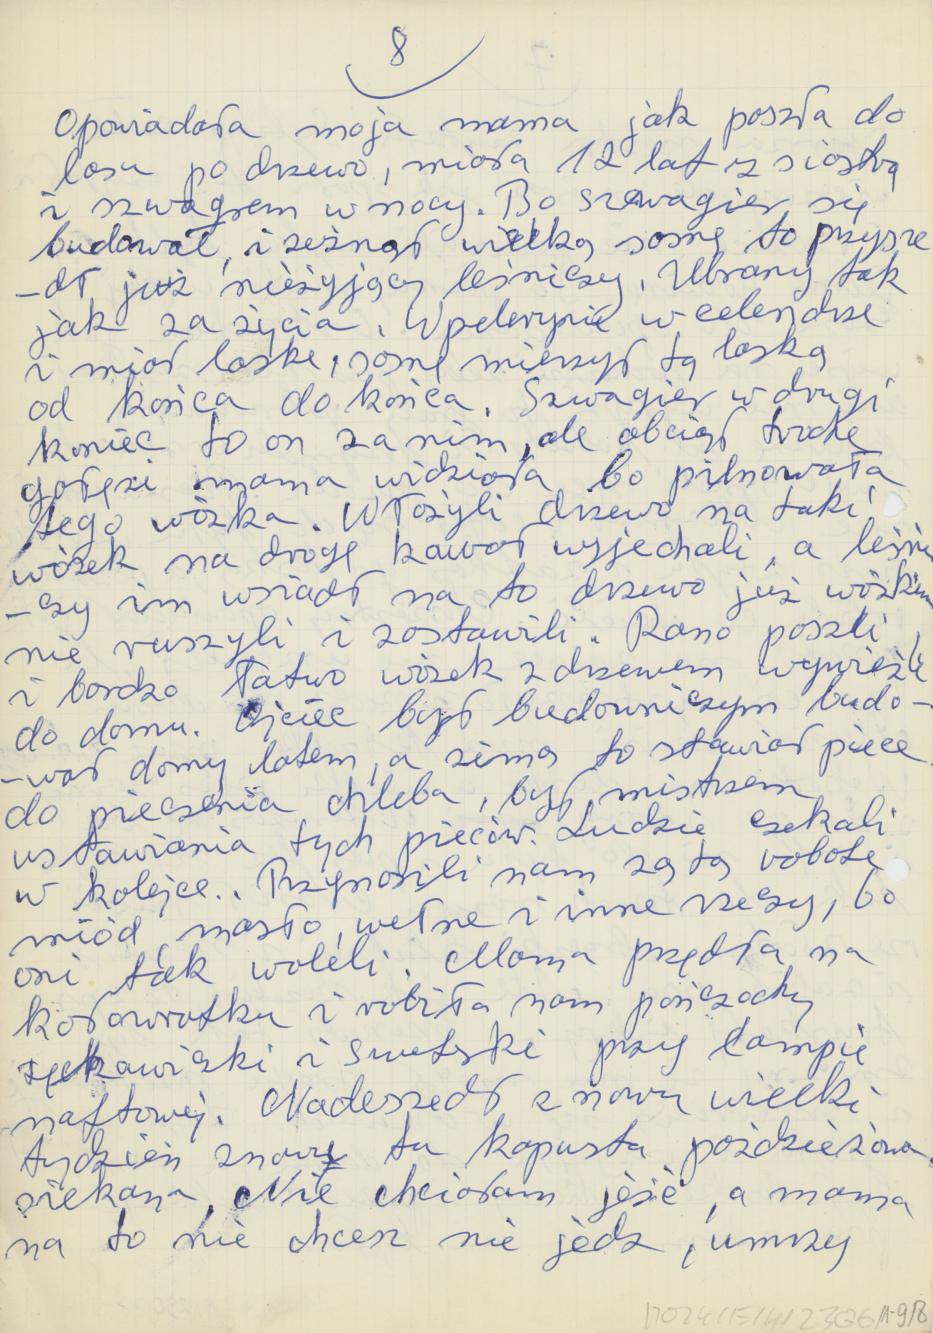 8
Opowiadała moja mama jak poszła do
lasu po drzewo, miała 12 lat z siostrą
i szwagrem w nocy. Bo szwagier się
budował, i zeżnął wielką sosnę to przysze
-dł już nieżyjący leśniczy. Ubrany tak
jak za życia. W pelerynie w celendrze
i miał laske, sosnę mierzył tą laską
od końca do końca. Szwagier w drugi
koniec to on za nim, ale obciął troche
gałęzi mama widziała bo pilnowała
tego wózka. Włożyli drzewo na taki
wózek na drogę kawał wyjechali, a leśni
-czy im wsiadł na to drzewo już wózkiem
nie ruszyli i zostawili. Rano poszli,
i bardzo łatwo wózek z drzewem wywieźli
do domu. Ojciec był budowniczym budo-
-wał domy latem, a zimą to stawiał piece
do pieczenia chleba, był mistrzem
ustawiania tych pieców. Ludzie czekali
w kolejce.. Przynosili nam za tą robote
miód masło, wełne i inne rzeczy, bo
oni tak woleli. Mama przędła na
kołowrotku i robiła nam pończochy
rękawiczki i sweterki przy lampie
naftowej. Nadeszedł znowu wielki
tydzień znowu ta kapusta poździeżowa
siekana. Nie chciałam jeść, a mama
na to nie chcesz nie jedz, umrzy